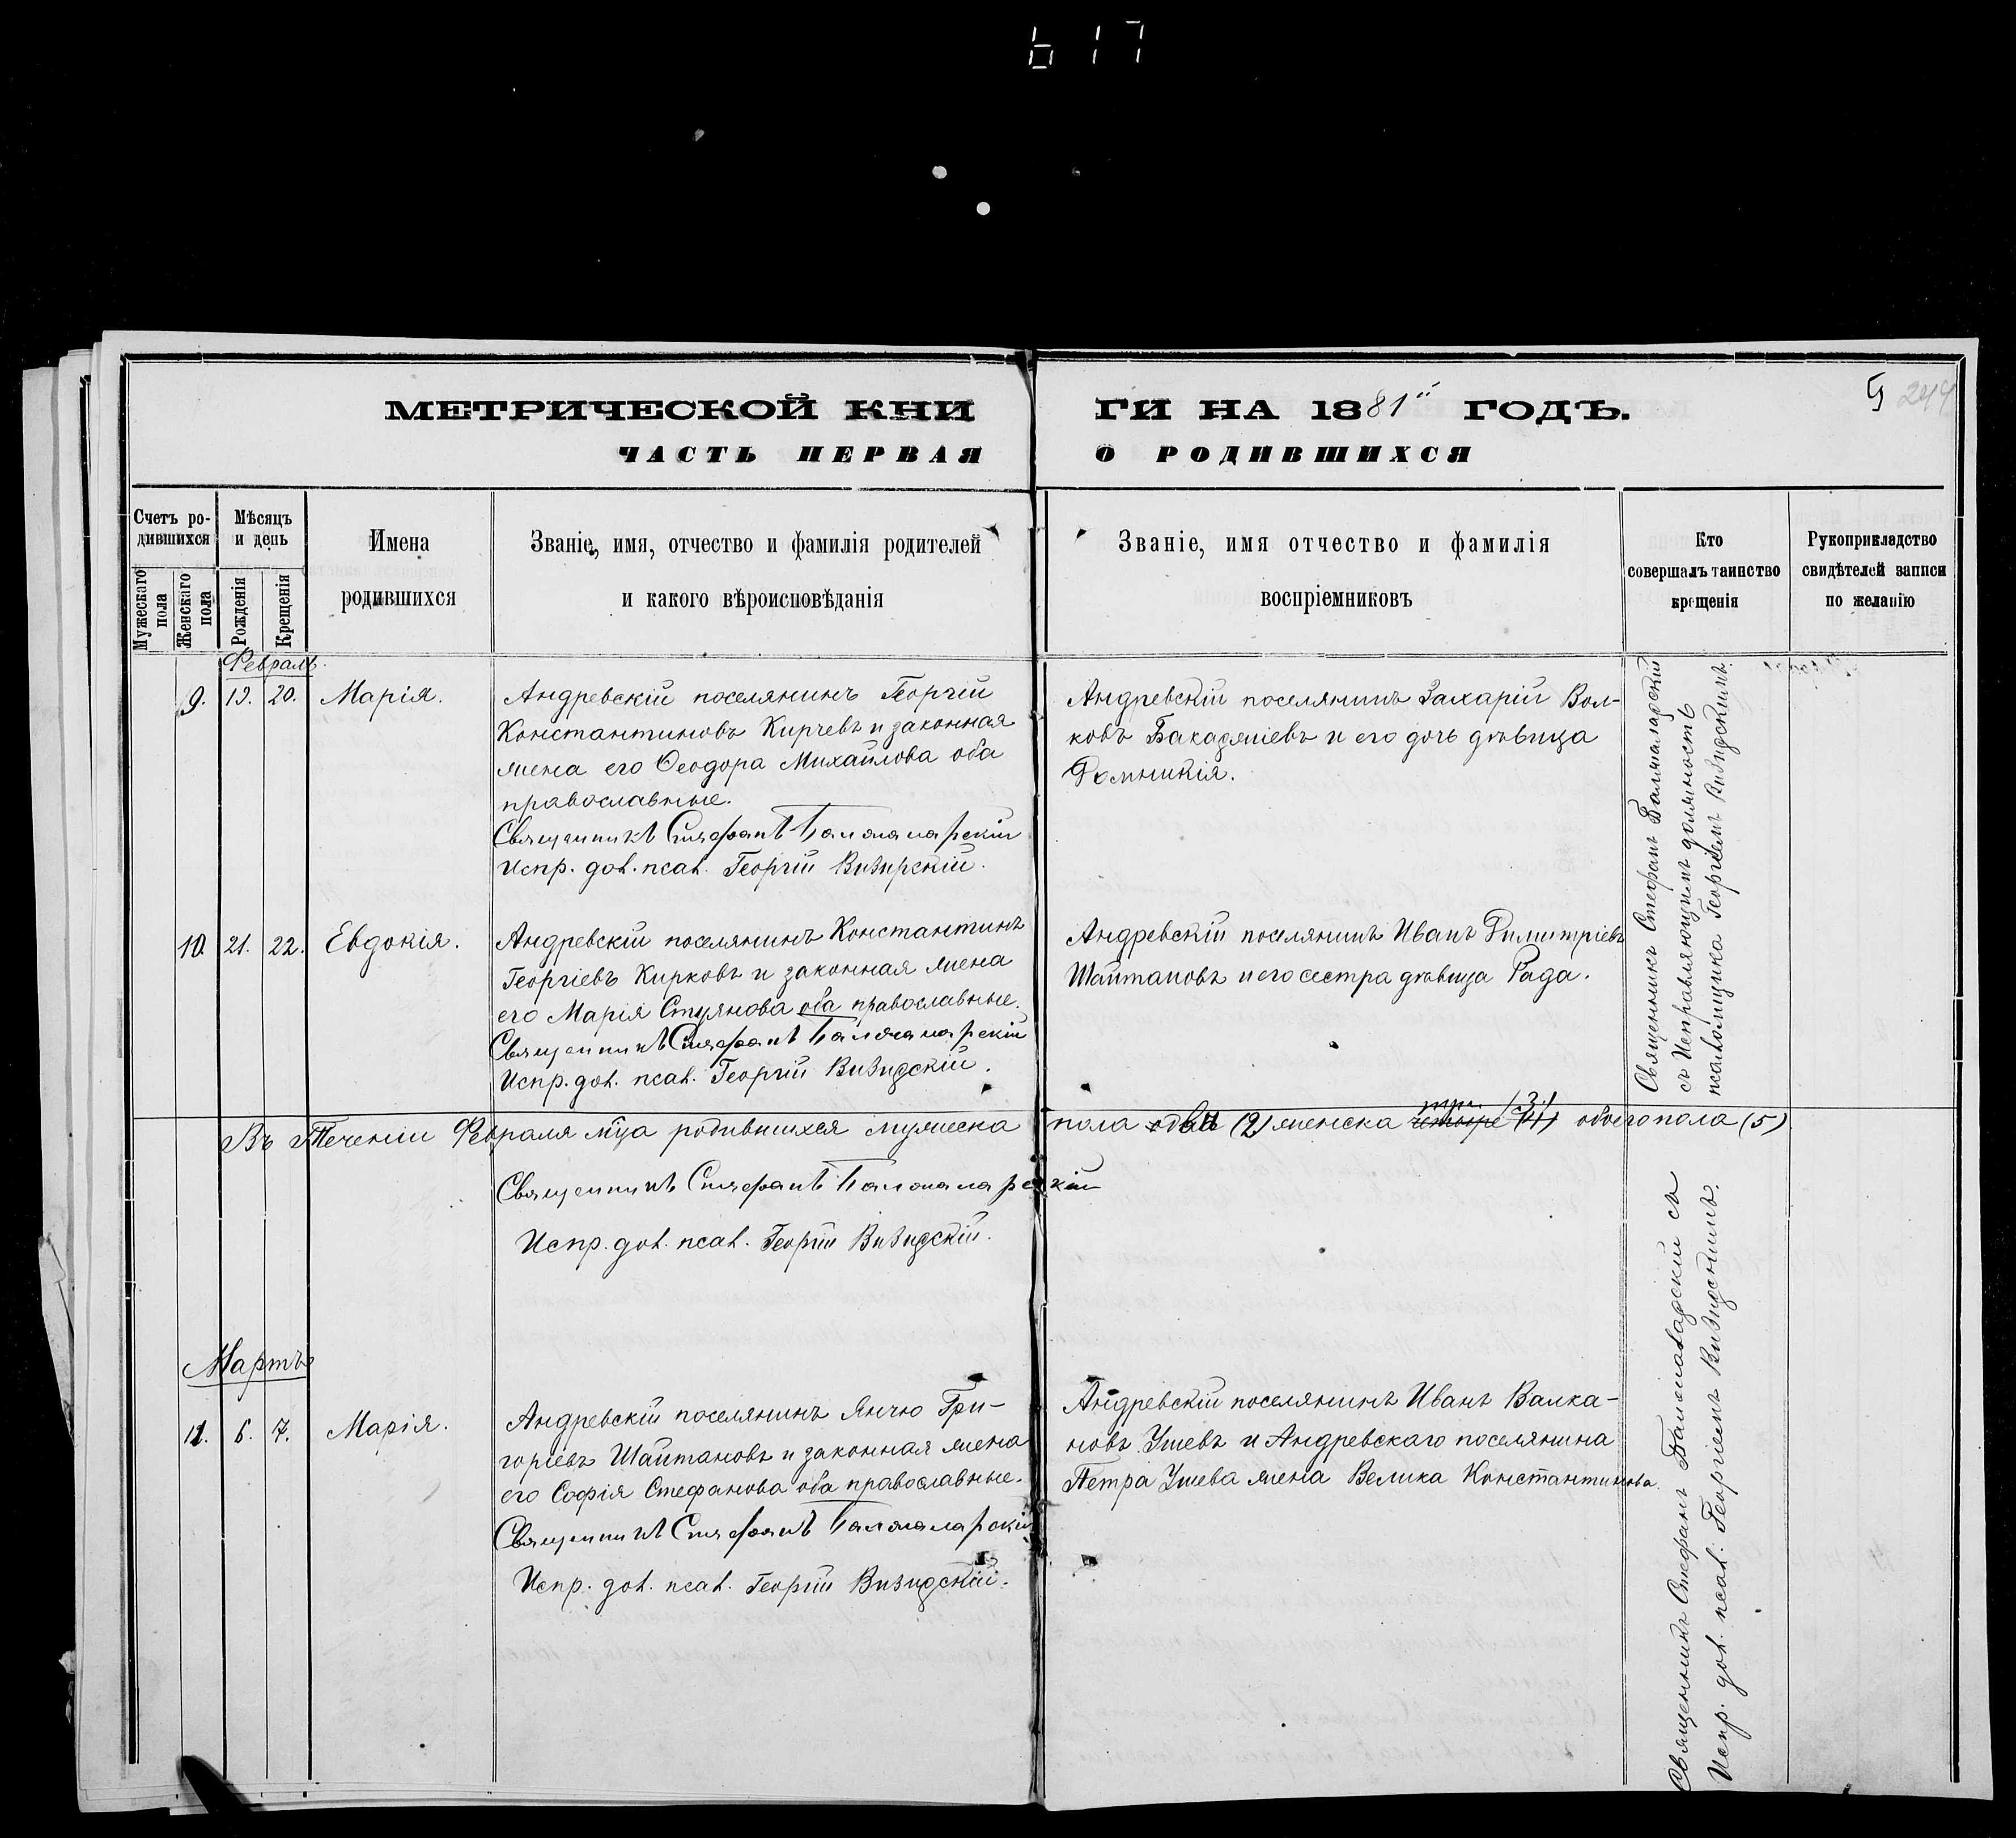 617
МЕТРИЧЕСКОЙ КНИГИ НА 1881й ГОДЪ.
5 244
ЧАСТЬ ПЕРВАЯ О РОДИВШИХСЯ
Счетъ ро-
дившихся
Мужескаго пола
Женскаго пола
Мѣсяцъ
и день
Рожденія
Крещенія
Имена
родившихся
Званіе, имя, отчество и фамилія родителей
и какого вѣроисповѣданія
Званіе, имя отчество и фамилія
воспріемниковъ
Кто
совершалъ таинство
крещенія
Рукоприкладство
свидѣтелей записи
по желанію
Февраль.
9. 19. 20. Марія.
Андревскій поселянинъ Георгій
Константиновъ Кирчевъ и законная
жена его Ѳеодора Михайлова оба
православные.
Священникъ Стефанъ
Испр. дол. псал. Георгій
Андревскій поселянинъ Захарій Вол-
ковъ и его дочь дѣвица
Домникія.
Священникъ Стефанъ
съ Исправляющимъ должность
псаломщика Георгіемъ
10. 21. 22. Евдокія.
Андревскій поселянинъ Константинъ
Георгіевъ Кирковъ и законная жена
его Марія Стуянова оба православные.
Священникъ Стефанъ
Испр. дол. псал. Георгій Визидскій.
Андревскій поселянинъ Иванъ Димитріевъ
Шайтановъ и его сестра дѣвица Рада.
Въ Теченіи Февраля м-ца родившихся мужеска пола два (2) женска четыре (4) три (3) обоего пола (5)
Священникъ Стефанъ
Испр. дол. псал. Георгій Визидскій.
Мартъ
11. 6. 7. Марія.
Андревскій поселянинъ Янчю Гри-
горіевъ Шайтановъ и законная жена
его Софія Стефанова оба православные.
Священникъ Стефанъ
Испр. дол. псал. Георгій Визидскій.
Андревскій поселянинъ Иванъ Валка-
новъ Ушевъ и Андревскаго поселянина
Петра Ушева жена Велика Константинова.
Священникъ Стефанъ съ
Испр. дол. псал. Георгіемъ Визидскимъ.